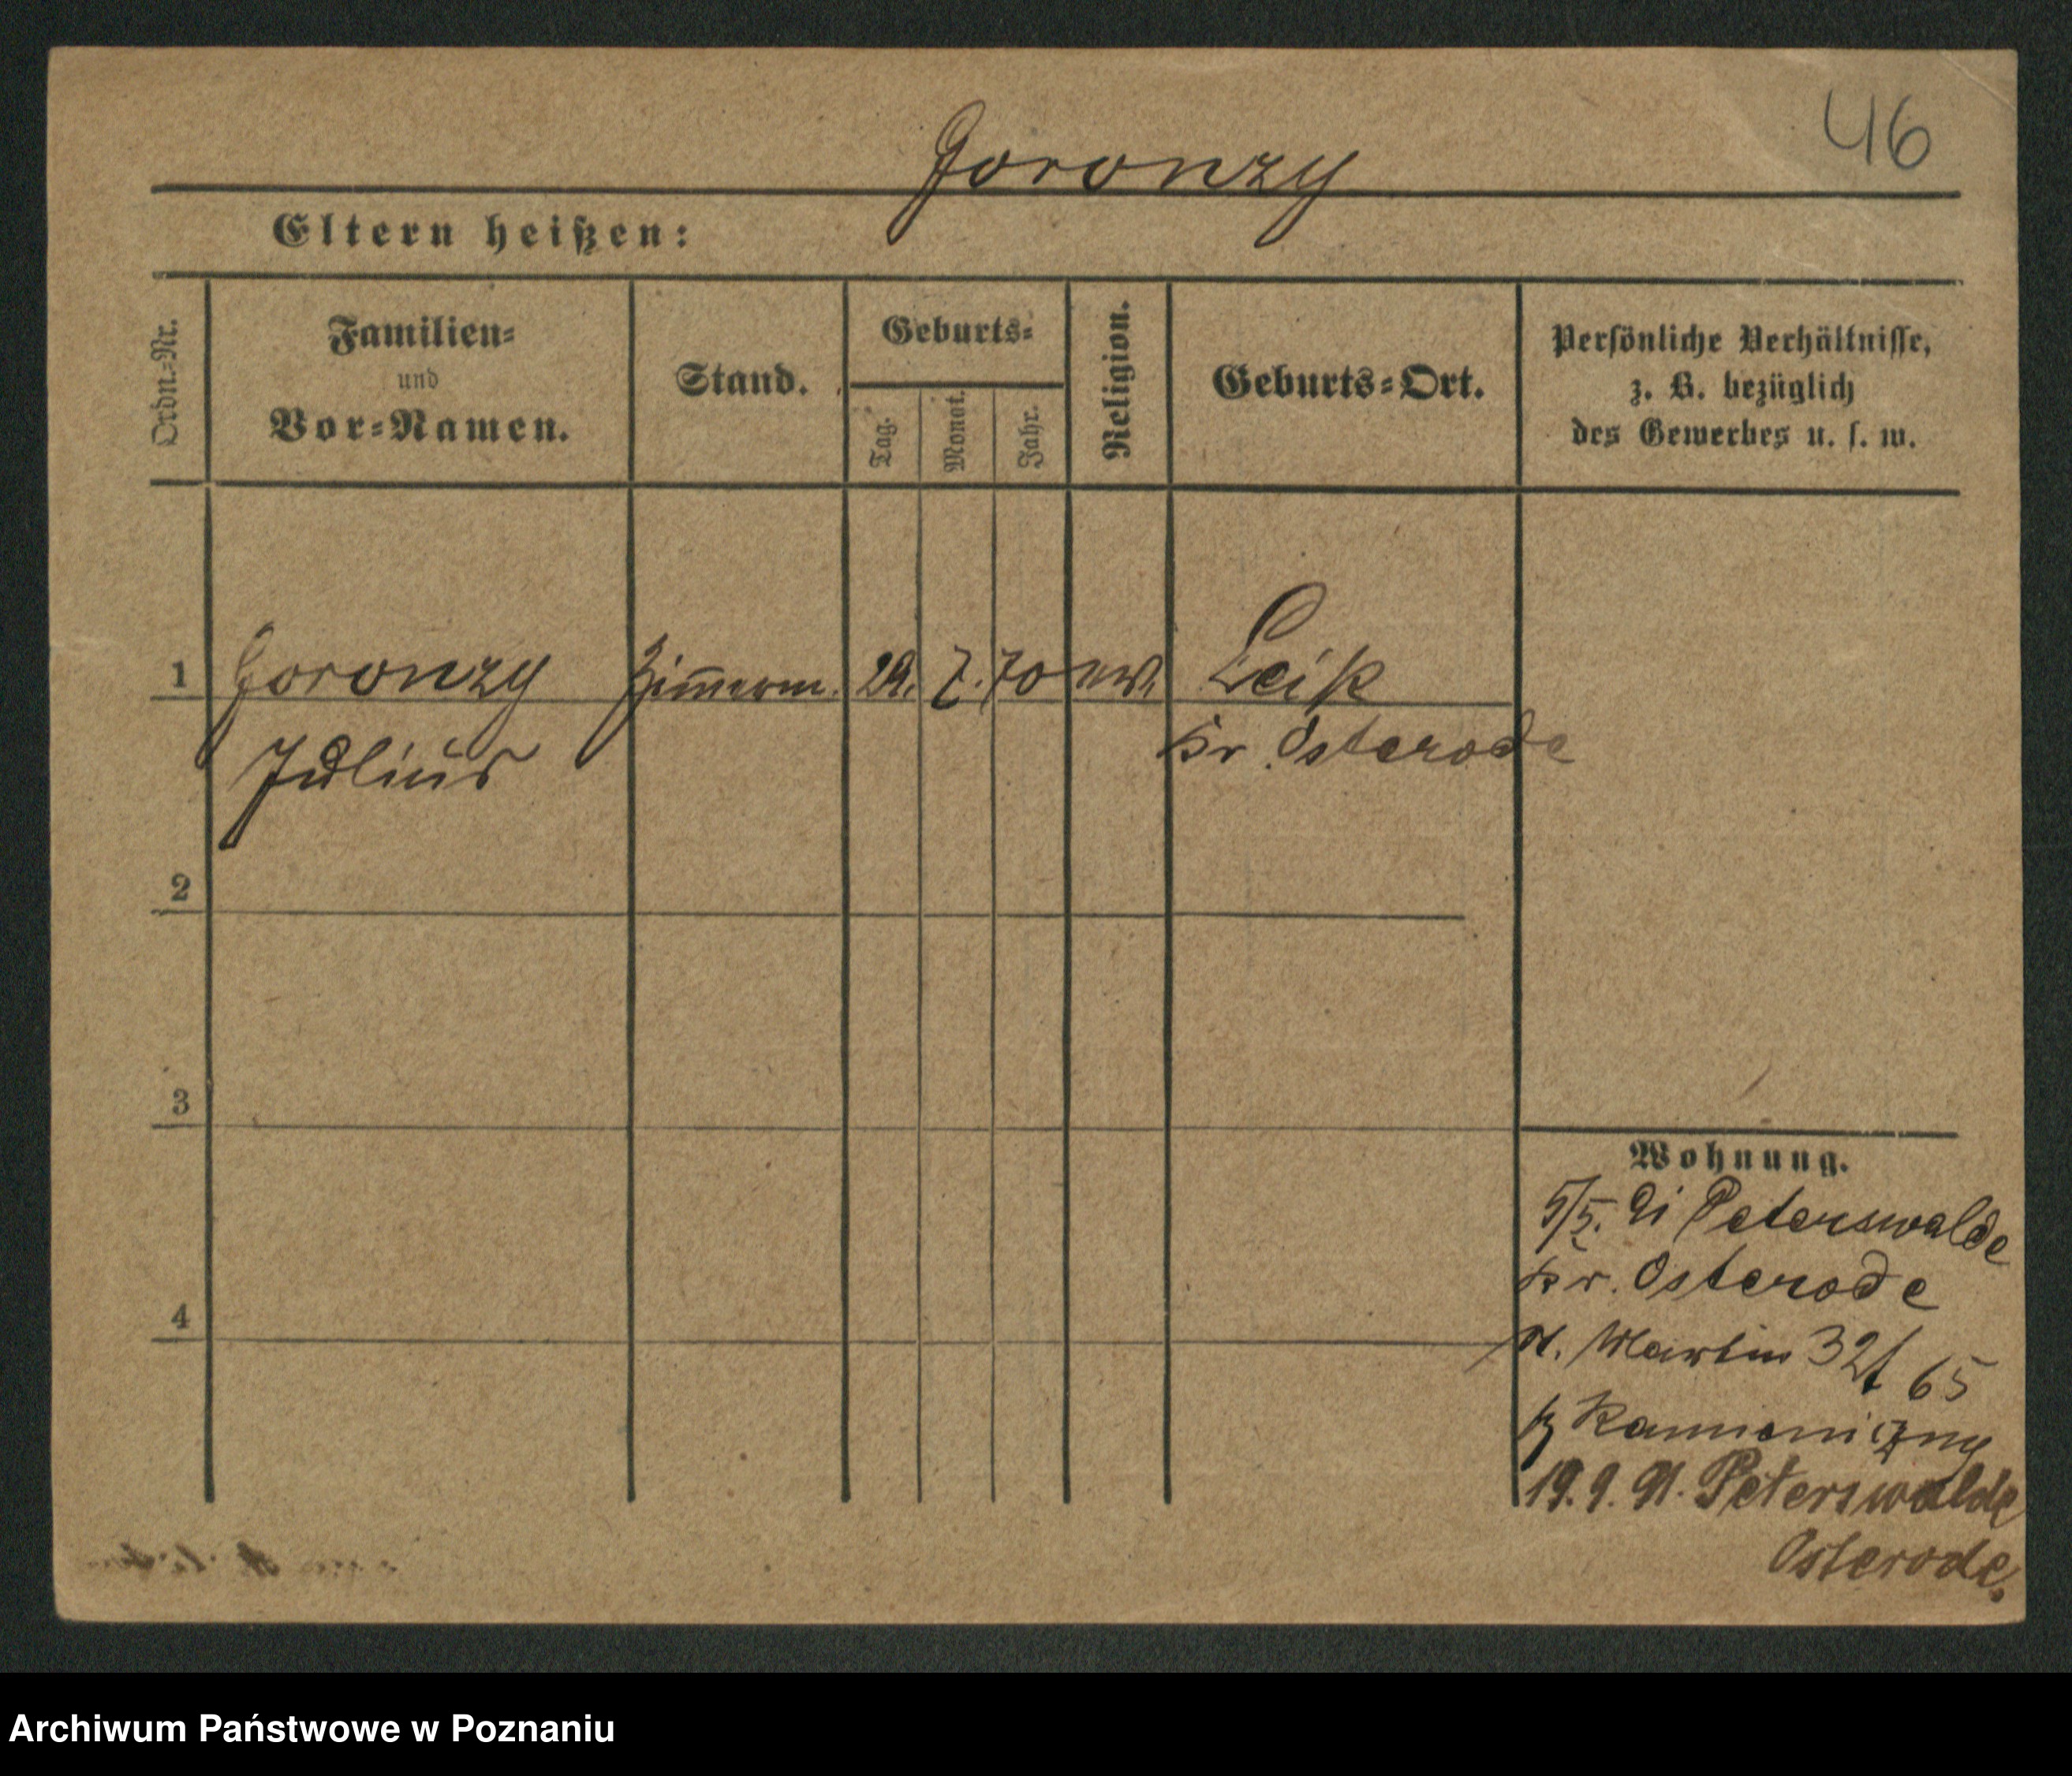 46
Goronzy
Eltern heißen:
Ordn.-Nr.
Familien-
und
Vor-Namen.
Stand.
Geburts-
Tag.
Monat.
Jahr.
Religion.
Geburts-Ort.
Persönliche Verhältnisse,
z. B. bezüglich
des Gewerbes u. s. w.
1 Goronzy Zimmerm. 29. 7. 70 ev. Leip
Julius Kr. Osterode
2
3
4
Wohnung.
5/5. 91 Peterswalde
Kr. Osterode
St. Martin 32 65
Kamieniczny
19. 9. 91. Peterswalde
Osterode.
Archiwum Państwowe w Poznaniu